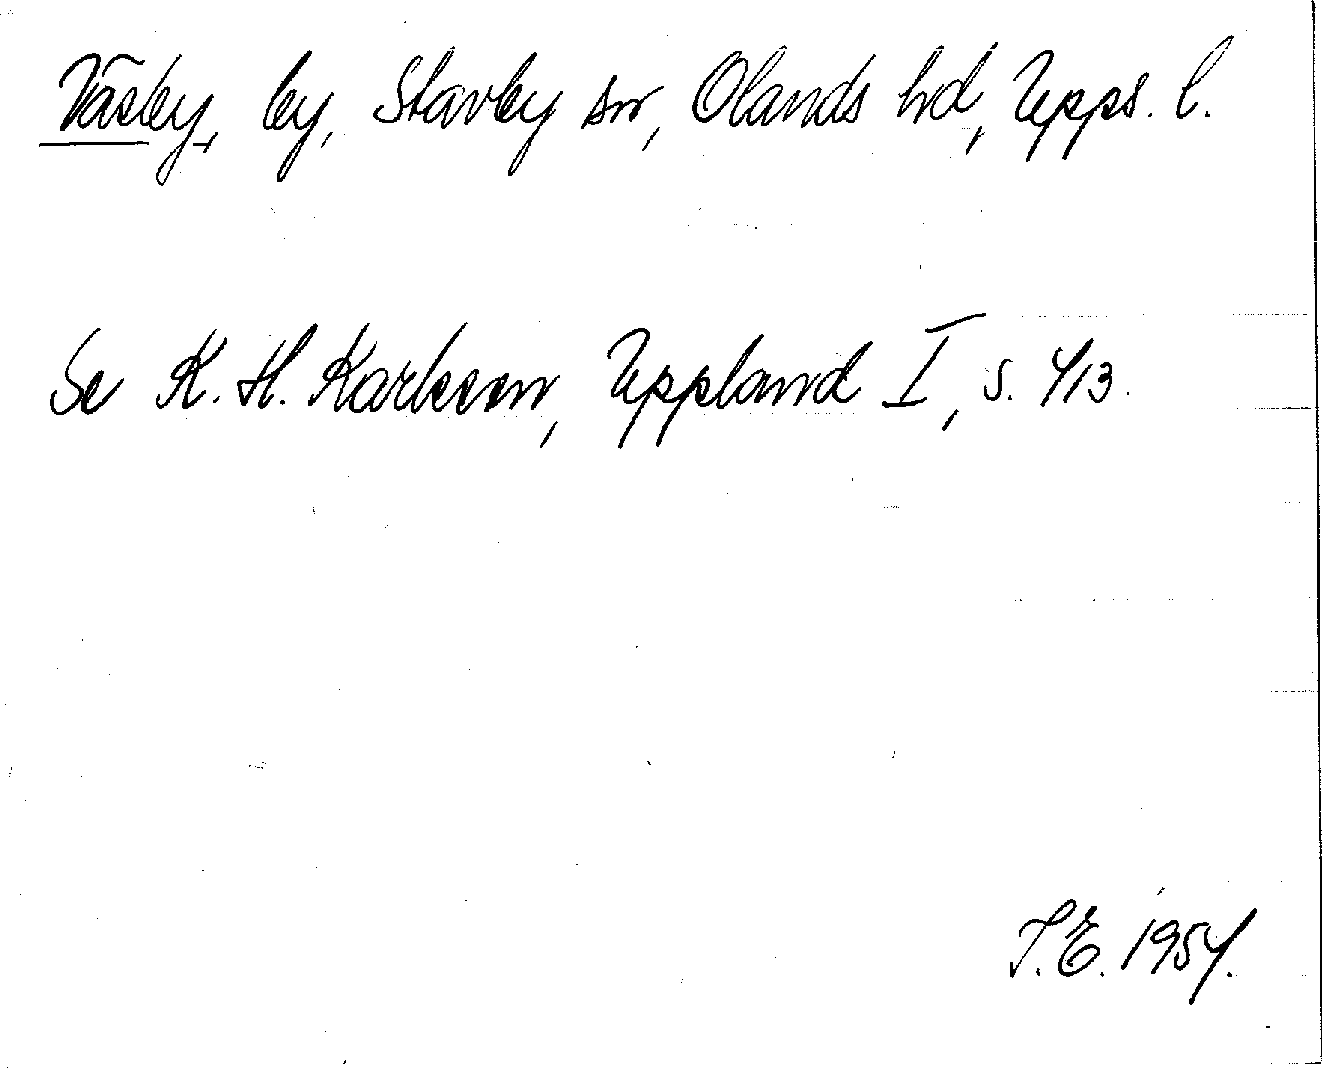 Väsby, by, Stavby sn, Olands hd, Upps. l.
Se K. H. Karlsson, Uppland I, s. 413.
T.E. 1954.